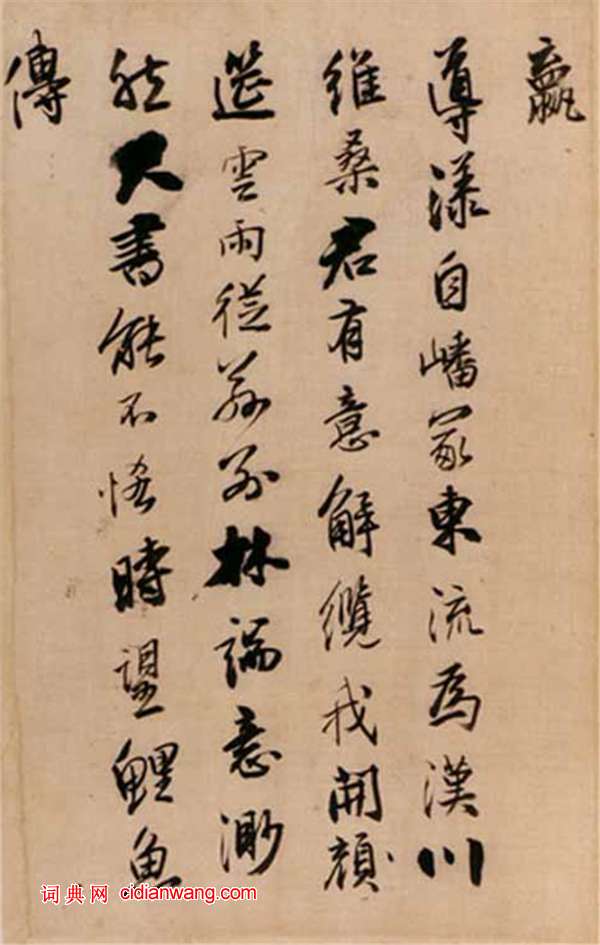 導漾自嶓冢東流為漢川
維桑君有意解纜我開顏
筵雲雨從茲別林端意渺
然尺書能不悋時望鯉魚
傳
词典网 cidianwang.com